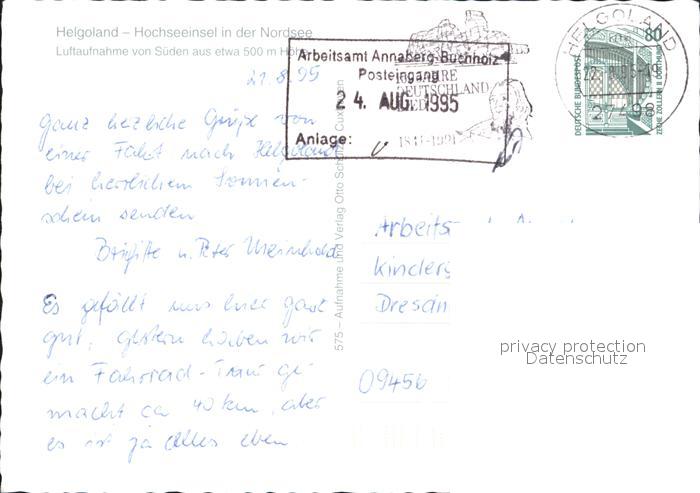 Helgoland – Hochseeinsel in der Nordsee
Luftaufnahme von Süden aus etwa 500 m Höhe
21.8.95
Ganz herzliche Grüße von
einer Fahrt nach Helgoland
bei herrlichem Sonnen-
schein senden
Brigitte u. Peter
Es gefällt uns hier ganz
gut, gestern haben wir
ein Fahrrad-Tour ge-
macht ca 40 km, aber
es ist ja alles eben.
575 – Aufnahme und Verlag Otto
Arbeitsamt Annaberg-Buchholz
Posteingang
24. AUG. 1995
Anlage:
JAHRE
DEUTSCHLAND
LIED
1841-1991
HELGOLAND
27498
80
DEUTSCHE BUNDESPOST
ZECHE ZOLLERN II DORTMUND
Arbeits
Kinderg
Dresdn
09456
privacy protection
Datenschutz